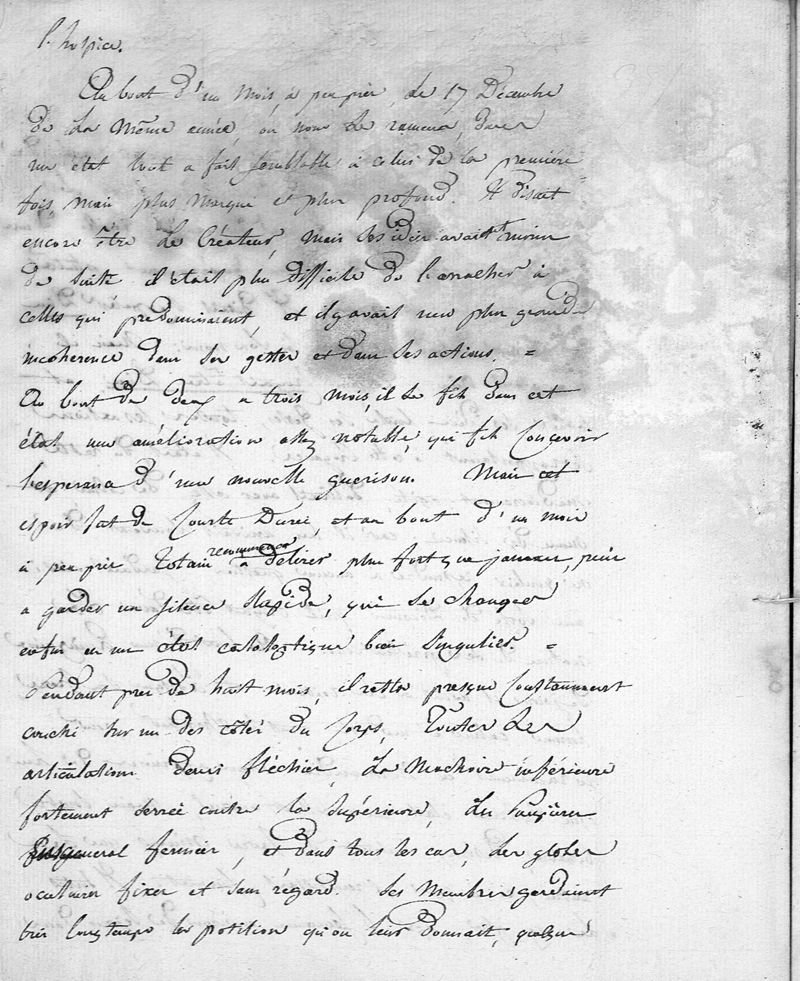 l'hospice.
Au bout d'un mois, à peu près, le 17 Décembre
de la même année, on nous le ramena, dans
un état tout a fait semblable à celui de la première
fois, mais plus marqué et plus profond. Il disait
encore être le Créateur, mais ses idées avaient moins
de suite, il était plus difficile de l'arracher à
celles qui prédominaient, et il y avait une plus grande
incoherence dans ses gestes et dans ses actions. =
Au bout de deux a trois mois, il se fit dans cet
état une amélioration assez notable, qui fit concevoir
l'esperance d'une nouvelle guérison. Mais cet
espoir fut de courte durée, et au bout d'un mois
à peu près recommença
a délirer plus fort que jamais, puis
a garder un silence stupide, qui se changea
enfin en un état cataleptique bien singulier. =
Pendant près de huit mois, il resta presque constamment
couché sur un des côtés du corps, toutes les
articulations demi fléchies, la machoire inférieure
fortement serrée contre la supérieure, les paupières
general fermées, et dans tous les cas, les globes
oculaires fixes et sans regard. Ses membres gardaient
très longtemps la position qu'on leur donnait, quelque